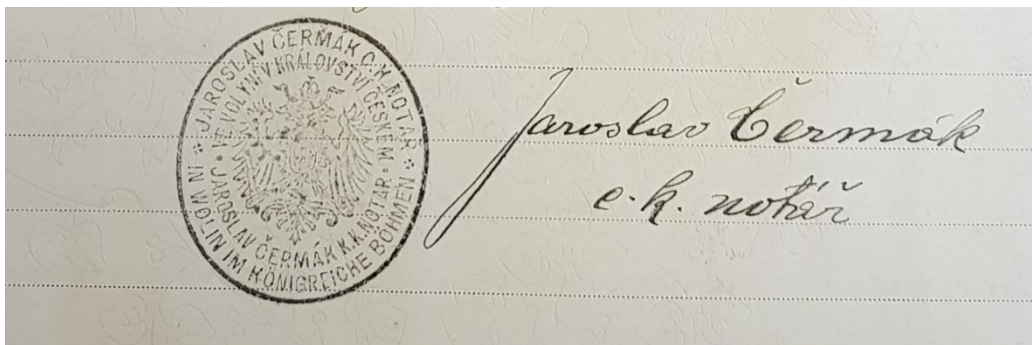 JAROSLAV ČERMÁK C.K. NOTÁŘ
VE VOLYNI V KRÁLOVSTVÍ ČESKÉM
JAROSLAV ČERMÁK K.K. NOTAR
IN WOLIN IM KÖNIGREICHE BÖHMEN
Jaroslav Čermák
c.k. notář